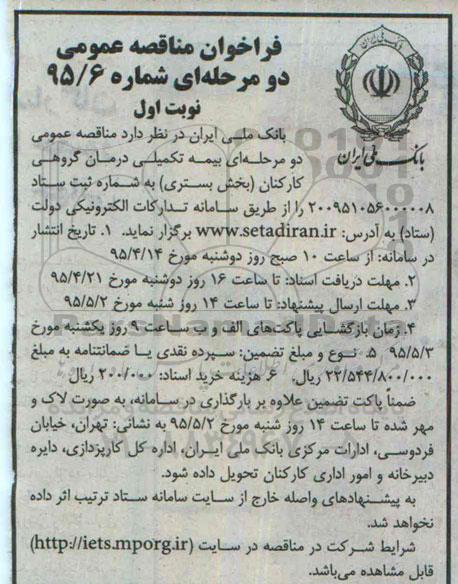 فراخوان مناقصه عمومی
دو مرحله‌ای شماره ۹۵/۶
نوبت اول
بانک ملی ایران
بانک ملی ایران در نظر دارد مناقصه عمومی
دو مرحله‌ای بیمه تکمیلی درمان گروهی
کارکنان (بخش بستری) به شماره ثبت ستاد
۲۰۰۹۵۱۰۵۶۰۰۰۰۰۸ را از طریق سامانه تدارکات الکترونیکی دولت
(ستاد) به آدرس: www.setadiran.ir برگزار نماید. ۱. تاریخ انتشار
در سامانه: از ساعت ۱۰ صبح روز دوشنبه مورخ ۹۵/۴/۱۴
۲. مهلت دریافت اسناد: تا ساعت ۱۶ روز دوشنبه مورخ ۹۵/۴/۲۱
۳. مهلت ارسال پیشنهاد: تا ساعت ۱۴ روز شنبه مورخ ۹۵/۵/۲
۴. زمان بازگشایی پاکت‌های الف و ب ساعت ۹ روز یکشنبه مورخ
۹۵/۵/۳ ۵. نوع و مبلغ تضمین: سپرده نقدی یا ضمانتنامه به مبلغ
۲۲/۵۴۴/۸۰۰/۰۰۰ ریال. ۶. هزینه خرید اسناد: ۲۰۰/۰۰۰ ریال
ضمناً پاکت تضمین علاوه بر بارگذاری در سامانه، به صورت لاک و
مهر شده تا ساعت ۱۴ روز شنبه مورخ ۹۵/۵/۲ به نشانی: تهران، خیابان
فردوسی، ادارات مرکزی بانک ملی ایران، اداره کل کارپردازی، دایره
دبیرخانه و امور اداری کارکنان تحویل داده شود.
به پیشنهادهای واصله خارج از سایت سامانه ستاد ترتیب اثر داده
نخواهد شد.
شرایط شرکت در مناقصه در سایت (http://iets.mporg.ir)
قابل مشاهده می‌باشد.